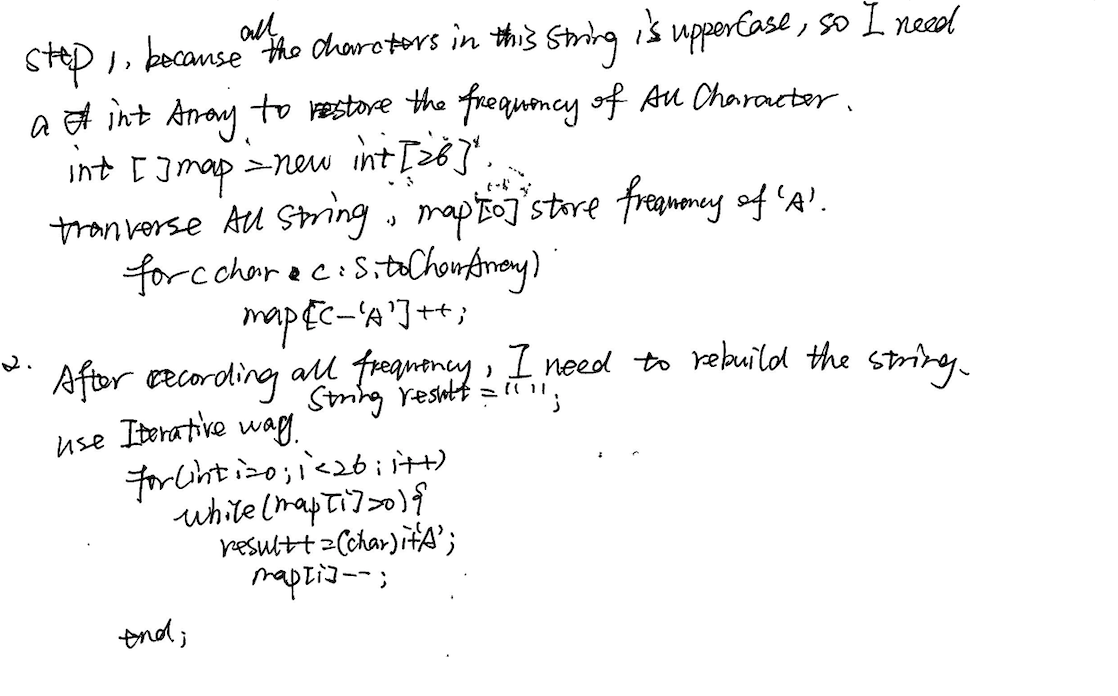 step 1, because all the charators in this string is upperCase, so I need
a int Array to restore the frequency of All Character.
int [] map = new int [26].
tranverse All String, map[0] store frequency of 'A'.
for c char c : S.toCharArray)
map[C-'A']++;
2. After recording all frequency, I need to rebuild the string.
String result = "";
use Iterative way.
for(int i=0; i<26; i++)
while (map[i]>0){
result+=(char)i+'A';
map[i]--;
end;